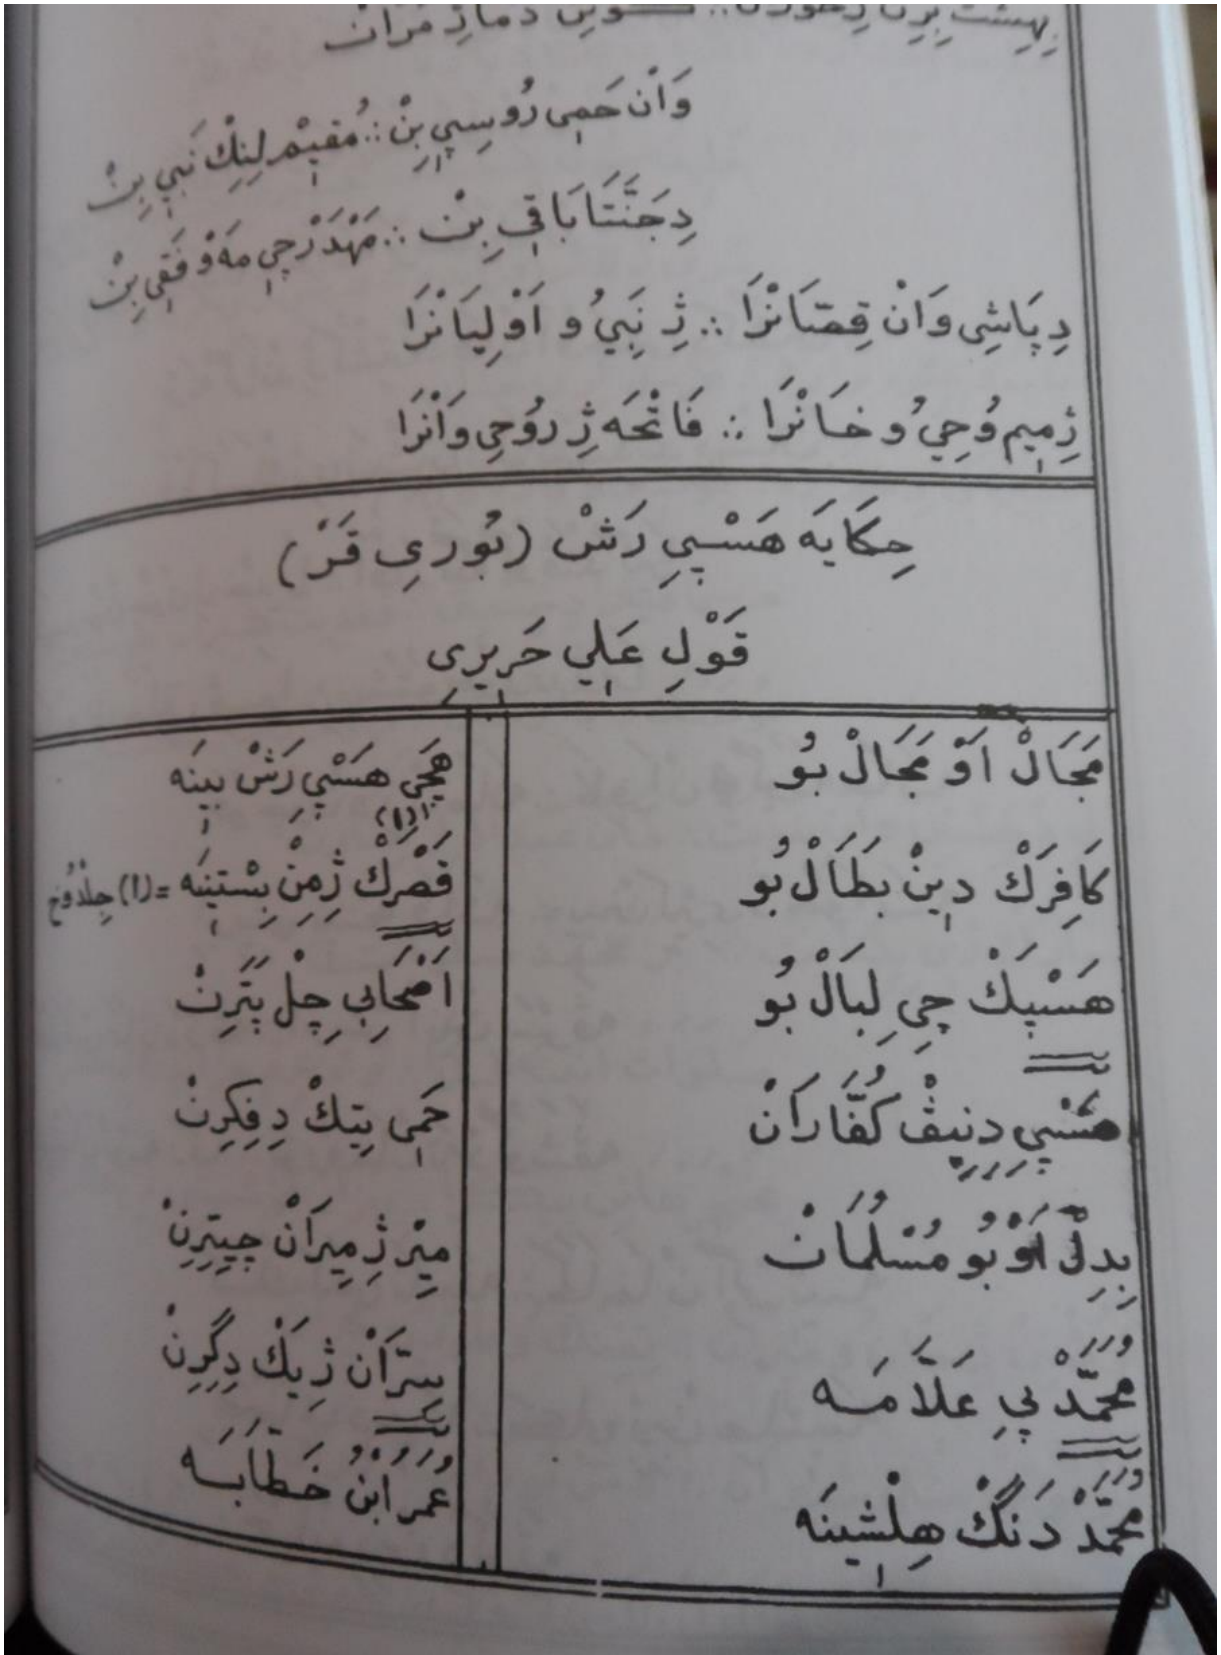 بِهِشْتْ بِرِنْ
وَانْ حَمِی رُوسِپِي بِنْ ∴ مُقِيمْ لِنِكْ نَبِي بِنْ
دِجَنَّتَا بَاقِي بِنْ ∴ مَهْدَرْچِي مَه وْ فَقِي بِنْ
دِپَاشِی وَانْ قِصَّانْرَا ∴ ژِ نَبِيُ و اَوْلِيَانْرَا
ژِمِيم وُحِيُ و خَانْرَا ∴ فَاتْحَه ژِ رُوحِي وَانْرَا
حِكَايَه هَسْپِي رَشْ (بُورِی قَرْ)
قَوْلِ عَلِي حَرِيرِی
مَجَالْ اَوْ مَجَالْ بُو
كَافِرَكْ دِينْ بَطَالْ بُو
هَسْپِكْ چِي لِبَالْ بُو
هَسْپِي دِنِيڤْ كُفَّارَانْ
بِدِلْ اَوْ بُو مُسْلُمَانْ
مُحَمَّدْ بِي عَلَّامَه
مُحَمَّدْ دَنْگْ هِلْشِينَه
هَچِي هَسْپِي رَشْ بِينَه
قَصْرَكْ ژِمِنْ بِسْتِينَه = (١) جِلْدُوخ
اَصْحَابِي چِلْ پَتَرِنْ
حَمِی بِتِكْ دِفِكِرِنْ
مِيْر ژِ مِيرَانْ چِيتِرِنْ
سِرَّانْ ژِيَكْ دِگِرِنْ
عُمَرْ اِبْنُ خَطَّابَه